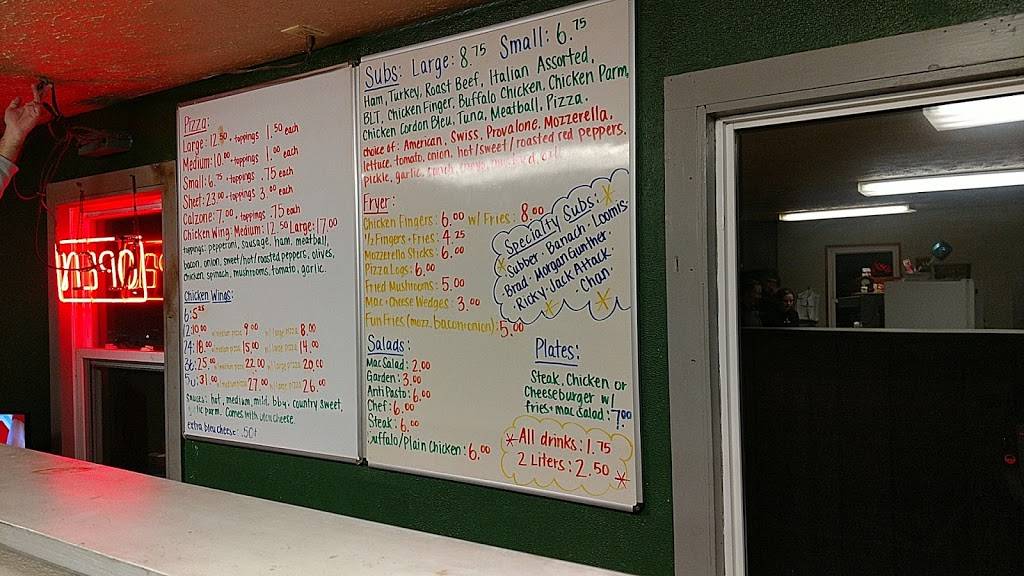 Pizza:
Large: 12.50 + toppings 1.50 each
Medium: 10.00 + toppings 1.00 each
Small: 6.75 + toppings .75 each
Sheet: 23.00 + toppings 3.00 each
Calzone: 7.00 + toppings .75 each
Chicken Wing: Medium: 12.50 Large: 17.00
toppings: pepperoni, sausage, ham, meatball,
bacon, onion, sweet/hot/roasted peppers, olives,
chicken, spinach, mushrooms, tomato, garlic.
Chicken Wings:
6: 5.25
12: 10.00 w/ medium pizza: 9.00 w/ large pizza: 8.00
24: 18.00 w/ medium pizza: 15.00 w/ large pizza: 14.00
36: 25.00 w/ medium pizza: 22.00 w/ large pizza: 20.00
50: 31.00 w/ medium pizza: 27.00 w/ large pizza: 26.00
sauces: hot, medium, mild, bbq, country sweet,
garlic parm. Comes with bleu cheese.
extra bleu cheese: .50¢
Subs: Large: 8.75 Small: 6.75
Ham, Turkey, Roast Beef, Italian Assorted,
BLT, Chicken Finger, Buffalo Chicken, Chicken Parm,
Chicken Cordon Bleu, Tuna, Meatball, Pizza.
choice of: American, Swiss, Provalone, Mozzerella,
lettuce, tomato, onion, hot/sweet/roasted red peppers,
pickle, garlic, mustard, oil
Fryer:
Chicken Fingers: 6.00 w/ Fries: 8.00
1/2 Fingers + Fries: 4.25
Mozzerella Sticks: 6.00
Pizza Logs: 6.00
Fried Mushrooms: 5.00
Mac + Cheese Wedges: 3.00
Fun Fries (mozz, bacon + onion): 5.00
Specialty Subs:
Subber · Banach · Loomis ·
Brad · Morgan Gunther ·
Ricky · Jack Attack ·
Chan ·
Salads:
Mac Salad: 2.00
Garden: 3.00
Anti Pasto: 6.00
Chef: 6.00
Steak: 6.00
Buffalo/Plain Chicken: 6.00
Plates:
Steak, Chicken or
Cheeseburger w/
fries + mac salad: 7.00
All drinks: 1.75
2 Liters: 2.50
OPEN